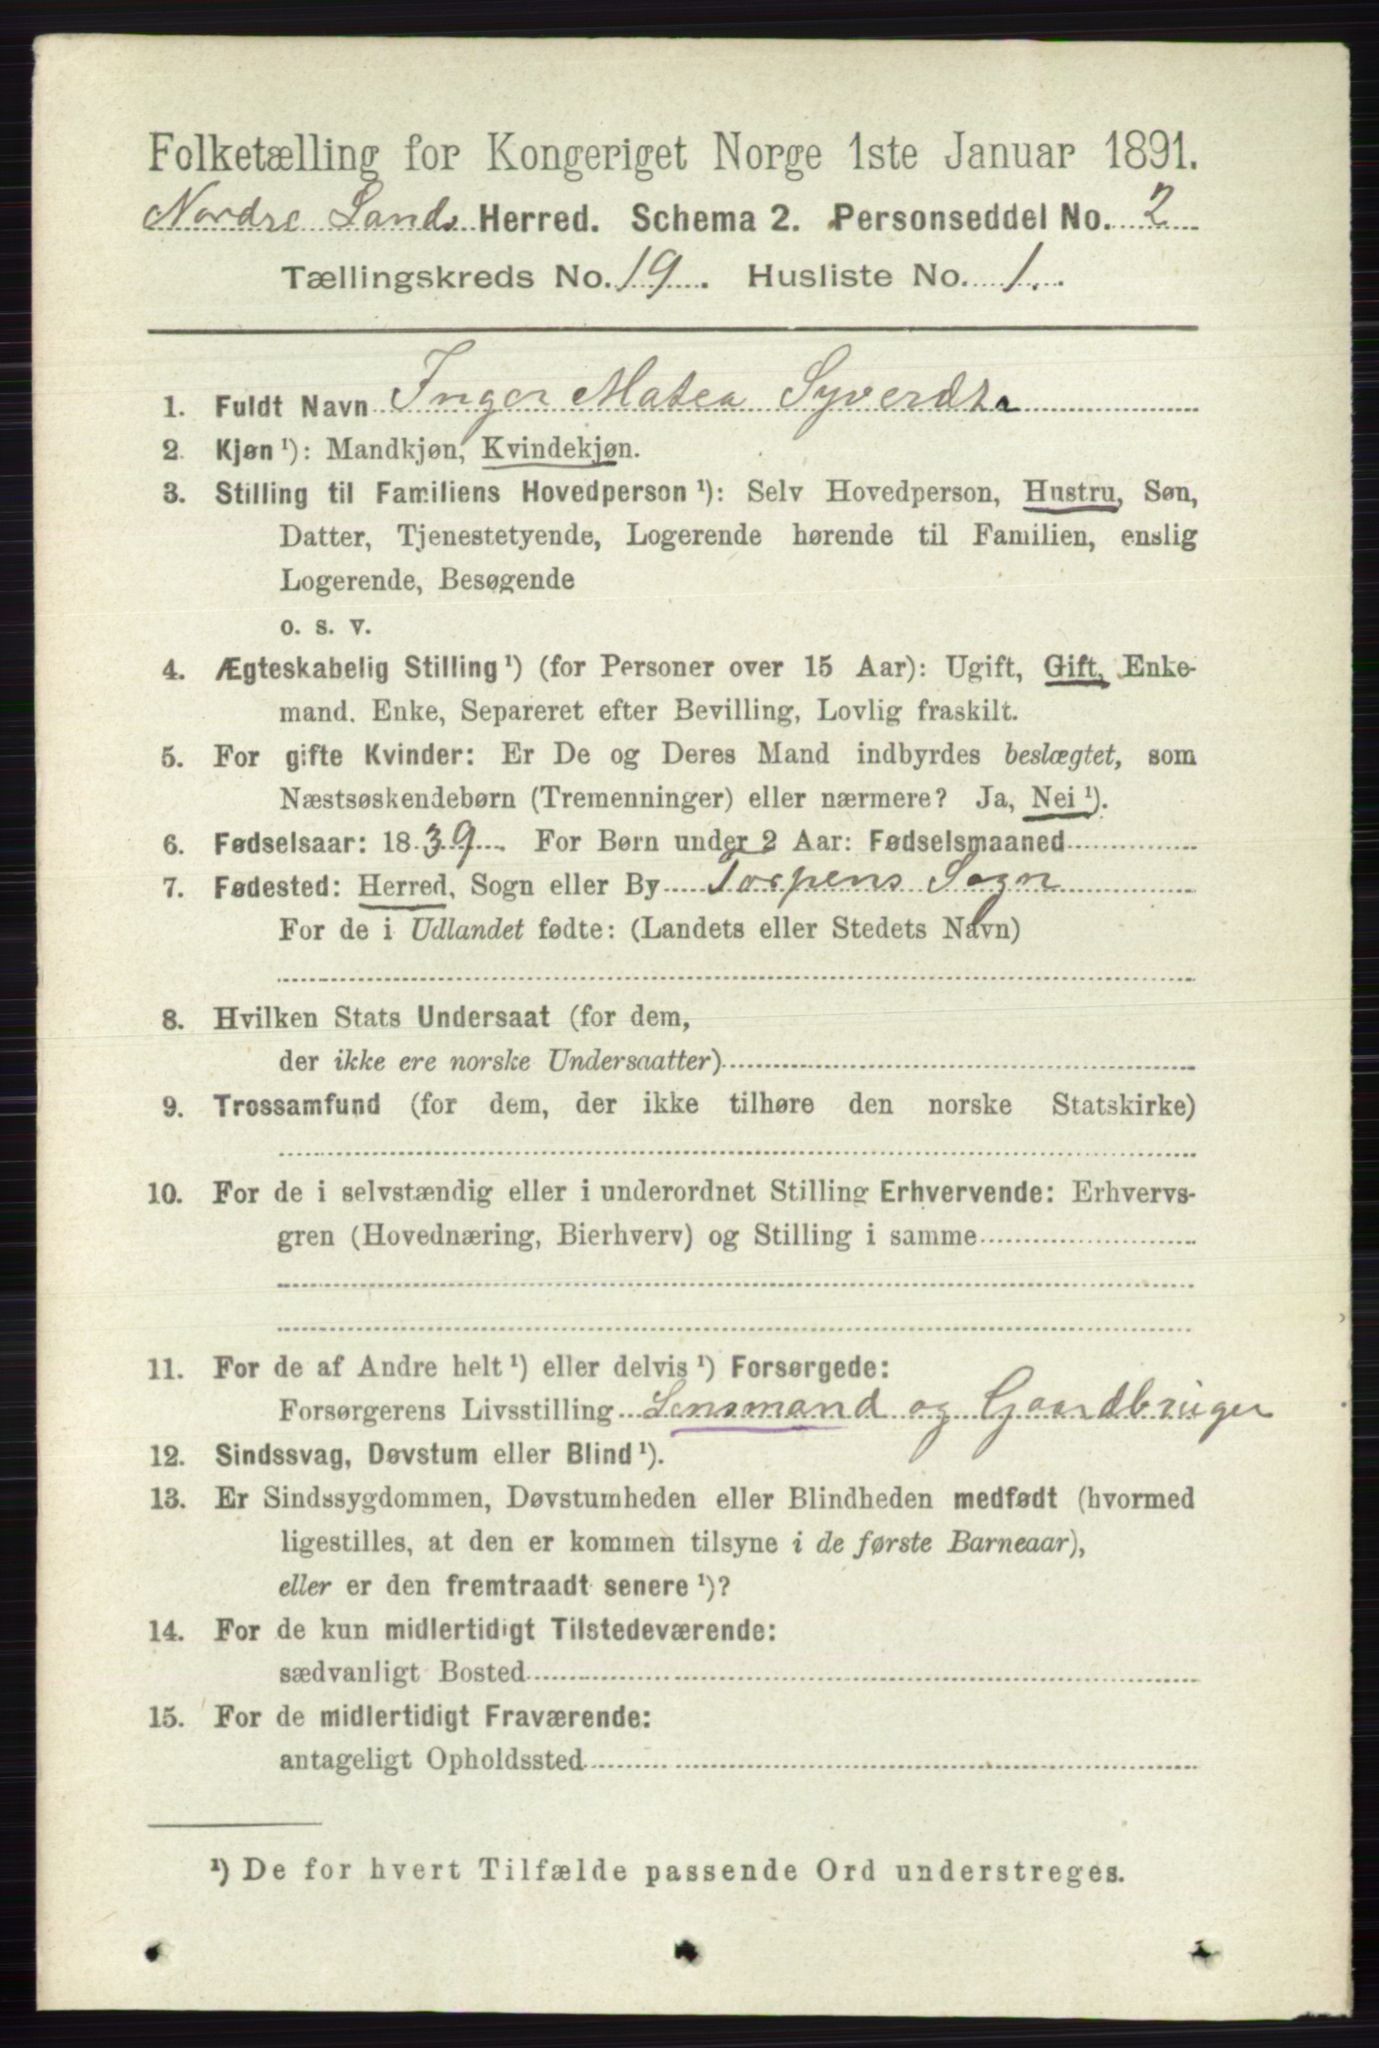 Folketælling for Kongeriget Norge 1ste Januar 1891.
Nordre Lands Herred. Schema 2. Personseddel No. 2
Tællingskreds No. 19. Husliste No. 1.
1. Fuldt Navn Inger Matea Syverdtr
2. Kjøn ¹): Mandkjøn, Kvindekjøn.
3. Stilling til Familiens Hovedperson ¹): Selv Hovedperson, Hustru, Søn,
Datter, Tjenestetyende, Logerende hørende til Familien, enslig
Logerende, Besøgende
o. s. v.
4. Ægteskabelig Stilling ¹) (for Personer over 15 Aar): Ugift, Gift, Enke-
mand. Enke, Separeret efter Bevilling, Lovlig fraskilt.
5. For gifte Kvinder: Er De og Deres Mand indbyrdes beslægtet, som
Næstsøskendebørn (Tremenninger) eller nærmere? Ja, Nei ¹).
6. Fødselsaar: 1839. For Børn under 2 Aar: Fødselsmaaned
7. Fødested: Herred, Sogn eller By Torpens Sogn
For de i Udlandet fødte: (Landets eller Stedets Navn)
8. Hvilken Stats Undersaat (for dem,
der ikke ere norske Undersaatter)
9. Trossamfund (for dem, der ikke tilhøre den norske Statskirke)
10. For de i selvstændig eller i underordnet Stilling Erhvervende: Erhvervs-
gren (Hovednæring, Bierhverv) og Stilling i samme
11. For de af Andre helt ¹) eller delvis ¹) Forsørgede:
Forsørgerens Livsstilling Lensmand og Gaardbruger
12. Sindssvag, Døvstum eller Blind ¹).
13. Er Sindssygdommen, Døvstumheden eller Blindheden medfødt (hvormed
ligestilles, at den er kommen tilsyne i de første Barneaar),
eller er den fremtraadt senere ¹)?
14. For de kun midlertidigt Tilstedeværende:
sædvanligt Bosted
15. For de midlertidigt Fraværende:
antageligt Opholdssted
¹) De for hvert Tilfælde passende Ord understreges.